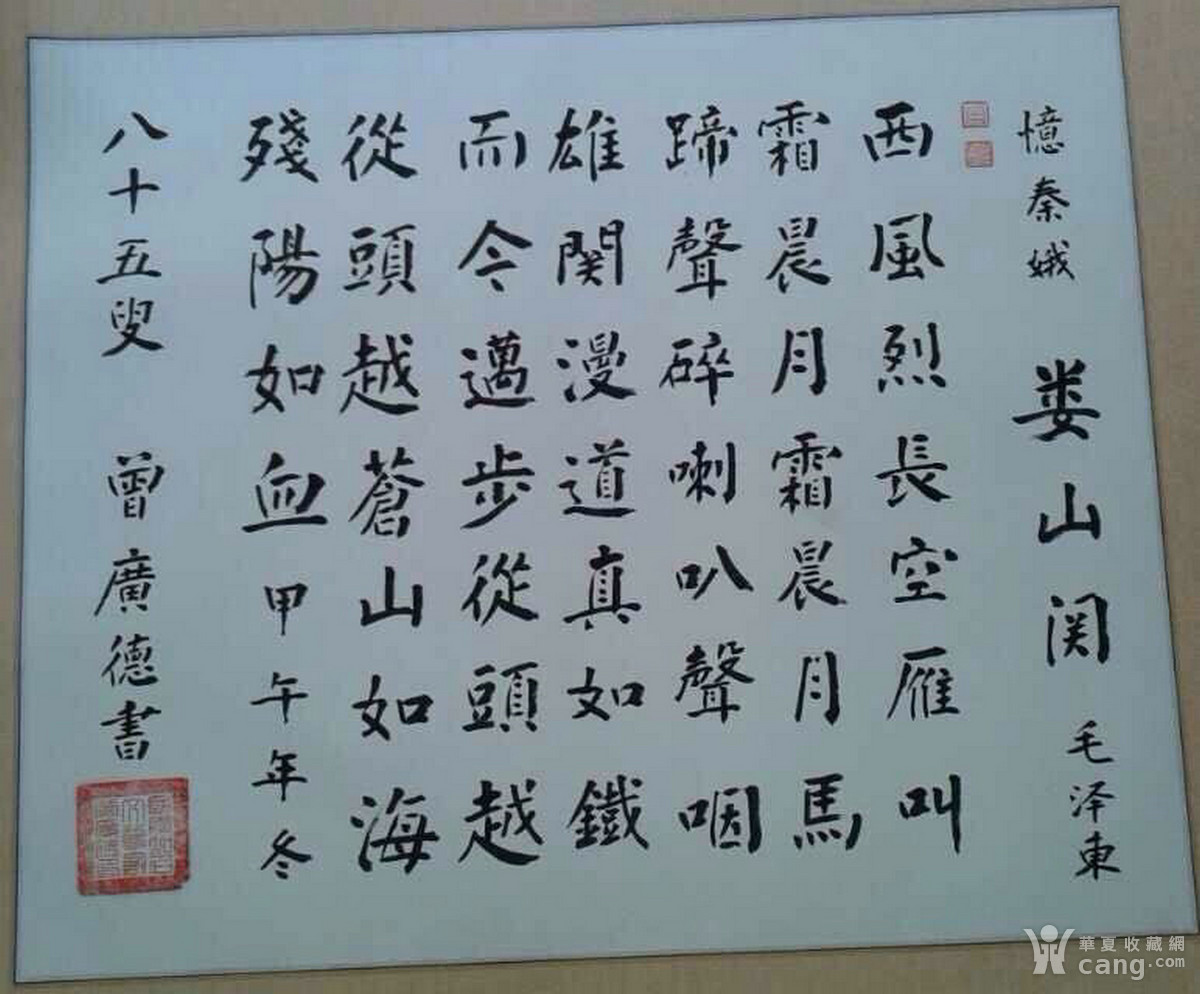 憶秦娥 娄山関 毛泽東
西風烈長空雁叫
霜晨月霜晨月馬
蹄聲碎喇叭聲咽
雄関漫道真如鐵
而令邁步從頭越
從頭越蒼山如海
殘陽如血甲午年冬
八十五叟 曾廣德書
華夏收藏網
cang.com